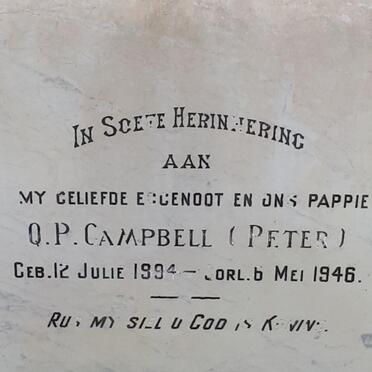 IN SOETE HERINNERING
AAN
MY GELIEFDE EGGENOOT EN ONS PAPPIE
Q.P. CAMPBELL (PETER)
GEB. 12 JULIE 1894 — OORL. 6 MEI 1946.
RUS MY SIEL U GOD IS KONING.